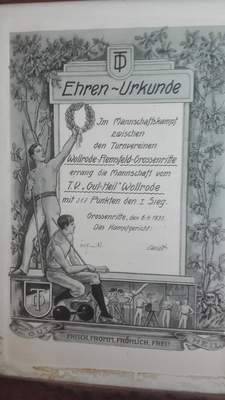 DT
Ehren-Urkunde
Im Mannschaftskampf
zwischen
den Turnvereinen
Wollrode-Flemsfeld-Grossenritte
errang die Mannschaft vom
T.V. „Gut-Heil" Wollrode
mit Punkten den I Sieg.
Grossenritte, den
Das Kampfgericht:
DT
FRISCH, FROMM, FRÖHLICH, FREI!